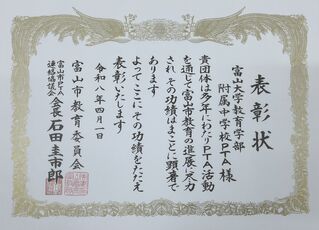 表彰状
富山大学教育学部
附属中学校PTA様
貴団体は多年にわたりPTA活動
を通じて富山市教育の進展に尽力
され その功績はまことに顕著で
あります
よってここに その功績をたたえ
表彰いたします
令和八年四月一日
富山市教育委員会
富山市PTA
連絡協議会
会長 石田圭市郎